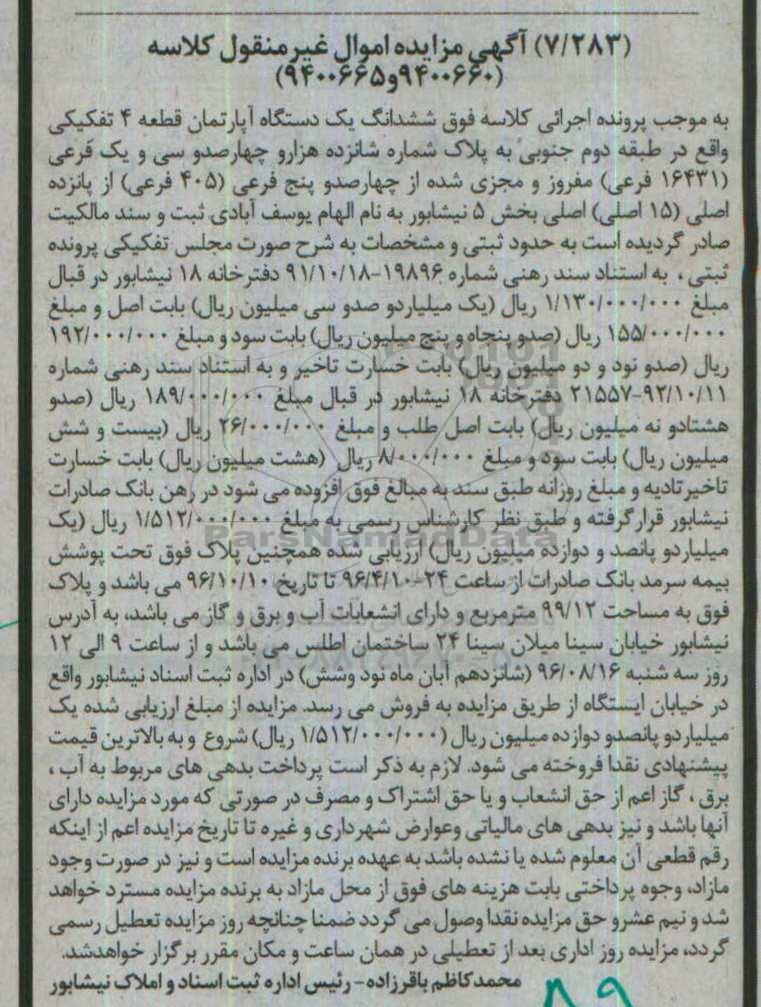 (۷/۲۸۳) آگهی مزایده اموال غیرمنقول کلاسه
(۹۴۰۰۶۶۰و۹۴۰۰۶۶۵)
به موجب پرونده اجرائی کلاسه فوق ششدانگ یک دستگاه آپارتمان قطعه ۴ تفکیکی
واقع در طبقه دوم جنوبی به پلاک شماره شانزده هزارو چهارصدو سی و یک فرعی
(۱۶۴۳۱ فرعی) مفروز و مجزی شده از چهارصدو پنج فرعی (۴۰۵ فرعی) از پانزده
اصلی (۱۵ اصلی) اصلی بخش ۵ نیشابور به نام الهام یوسف آبادی ثبت و سند مالکیت
صادر گردیده است به حدود ثبتی و مشخصات به شرح صورت مجلس تفکیکی پرونده
ثبتی ، به استناد سند رهنی شماره ۱۹۸۹۶-۹۱/۱۰/۱۸ دفترخانه ۱۸ نیشابور در قبال
مبلغ ۱/۱۳۰/۰۰۰/۰۰۰ ریال (یک میلیاردو صدو سی میلیون ریال) بابت اصل و مبلغ
۱۵۵/۰۰۰/۰۰۰ ریال (صدو پنجاه و پنج میلیون ریال) بابت سود و مبلغ ۱۹۲/۰۰۰/۰۰۰
ریال (صدو نود و دو میلیون ریال) بابت خسارت تاخیر و به استناد سند رهنی شماره
۲۱۵۵۷-۹۲/۱۰/۱۱ دفترخانه ۱۸ نیشابور در قبال مبلغ ۱۸۹/۰۰۰/۰۰۰ ریال (صدو
هشتادو نه میلیون ریال) بابت اصل طلب و مبلغ ۲۶/۰۰۰/۰۰۰ ریال (بیست و شش
میلیون ریال) بابت سود و مبلغ ۸/۰۰۰/۰۰۰ ریال (هشت میلیون ریال) بابت خسارت
تاخیرتادیه و مبلغ روزانه طبق سند به مبالغ فوق افزوده می شود در رهن بانک صادرات
نیشابور قرار گرفته و طبق نظر کارشناس رسمی به مبلغ ۱/۵۱۲/۰۰۰/۰۰۰ ریال (یک
ParsNamadData
میلیاردو پانصد و دوازده میلیون ریال) ارزیابی شده همچنین پلاک فوق تحت پوشش
بیمه سرمد بانک صادرات از ساعت ۲۴-۹۶/۴/۱۰ تا تاریخ ۹۶/۱۰/۱۰ می باشد و پلاک
فوق به مساحت ۹۹/۱۲ مترمربع و دارای انشعابات آب و برق و گاز می باشد، به آدرس
نیشابور خیابان سینا میلان سینا ۲۴ ساختمان اطلس می باشد و از ساعت ۹ الی ۱۲
روز سه شنبه ۹۶/۰۸/۱۶ (شانزدهم آبان ماه نود وشش) در اداره ثبت اسناد نیشابور واقع
در خیابان ایستگاه از طریق مزایده به فروش می رسد. مزایده از مبلغ ارزیابی شده یک
میلیاردو پانصدو دوازده میلیون ریال (۱/۵۱۲/۰۰۰/۰۰۰ ریال) شروع و به بالاترین قیمت
پیشنهادی نقدا فروخته می شود. لازم به ذکر است پرداخت بدهی های مربوط به آب ،
برق ، گاز اعم از حق انشعاب و یا حق اشتراک و مصرف در صورتی که مورد مزایده دارای
آنها باشد و نیز بدهی های مالیاتی وعوارض شهرداری و غیره تا تاریخ مزایده اعم از اینکه
رقم قطعی آن معلوم شده یا نشده باشد به عهده برنده مزایده است و نیز در صورت وجود
مازاد، وجوه پرداختی بابت هزینه های فوق از محل مازاد به برنده مزایده مسترد خواهد
شد و نیم عشرو حق مزایده نقدا وصول می گردد ضمنا چنانچه روز مزایده تعطیل رسمی
گردد، مزایده روز اداری بعد از تعطیلی در همان ساعت و مکان مقرر برگزار خواهدشد.
محمدکاظم باقرزاده - رئیس اداره ثبت اسناد و املاک نیشابور
۸۹